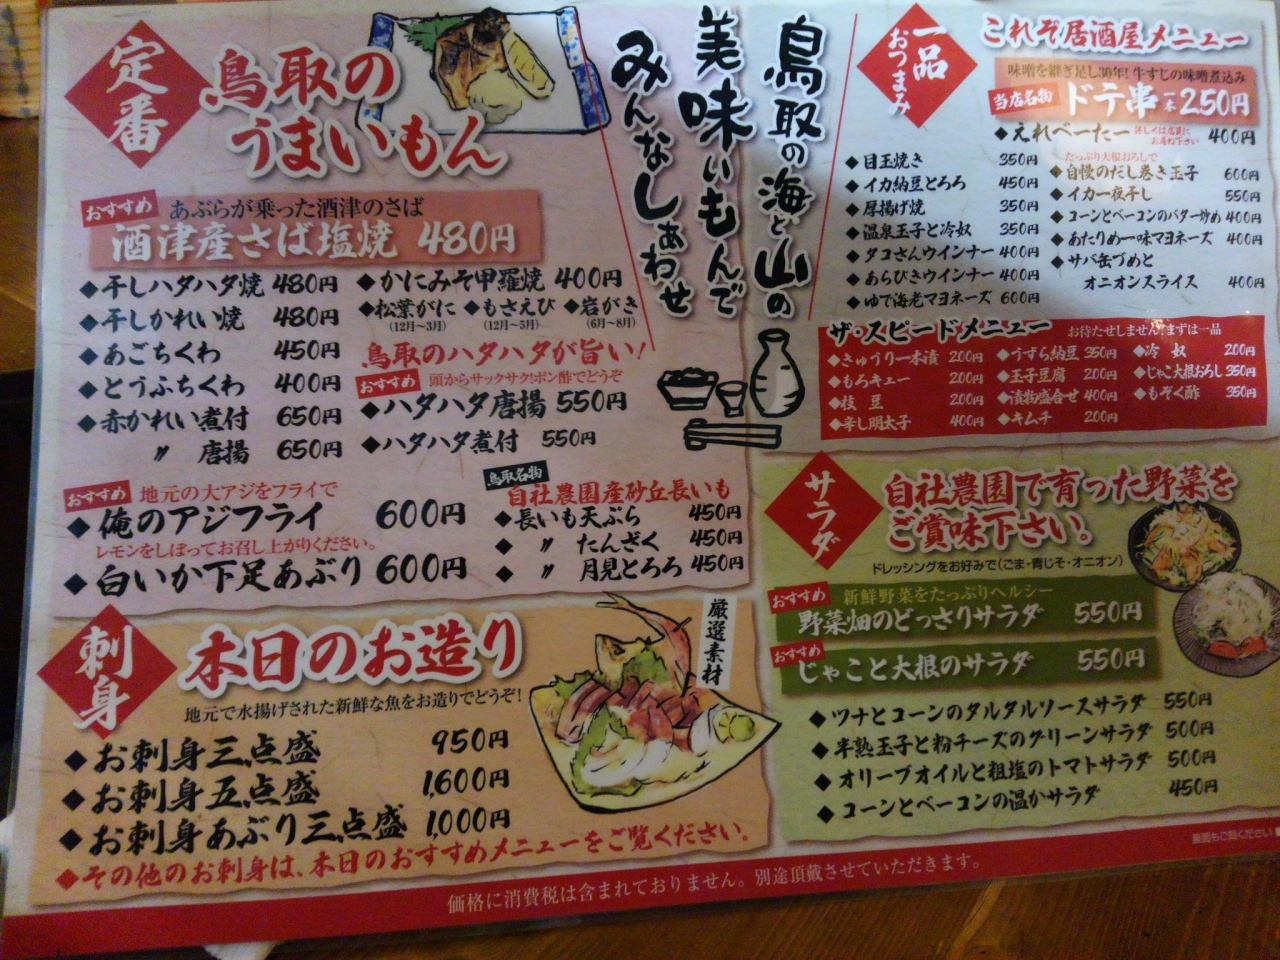 定番
鳥取の
うまいもん
おすすめ
あぶらが乗った酒津のさば
酒津産さば塩焼 480円
◆干しハタハタ焼 480円
◆干しかれい焼 480円
◆あごちくわ 450円
◆とうふちくわ 400円
◆赤かれい煮付 650円
〃 唐揚 650円
◆かにみそ甲羅焼 400円
◆松葉がに ◆もさえび ◆岩がき
(12月～3月) (12月～5月) (6月～8月)
鳥取のハタハタが旨い!
おすすめ 頭からサックサク!ポン酢でどうぞ
◆ハタハタ唐揚 550円
◆ハタハタ煮付 550円
おすすめ 地元の大アジをフライで
◆俺のアジフライ 600円
レモンをしぼってお召し上がりください。
◆白いか下足あぶり 600円
鳥取名物
自社農園産砂丘長いも
◆長いも天ぷら 450円
◆ 〃 たんざく 450円
◆ 〃 月見とろろ 450円
鳥取の海と山の
美味いもんで
みんなしあわせ
一品
おつまみ
これぞ居酒屋メニュー
味噌を継ぎ足し30年!牛すじの味噌煮込み
当店名物 ドテ串 一本 250円
◆えれべーたー 詳しくは店員にお尋ね下さい 400円
◆目玉焼き 350円
◆イカ納豆とろろ 450円
◆厚揚げ焼 350円
◆温泉玉子と冷奴 350円
◆タコさんウインナー 400円
◆あらびきウインナー 400円
◆ゆで海老マヨネーズ 600円
たっぷり大根おろしで
◆自慢のだし巻き玉子 600円
◆イカ一夜干し 550円
◆コーンとベーコンのバター炒め 400円
◆あたりめ一味マヨネーズ 400円
◆サバ缶づめと
オニオンスライス 400円
ザ・スピードメニュー お待たせしません!まずは一品
◆きゅうり一本漬 200円
◆もろキュー 200円
◆枝豆 200円
◆辛し明太子 400円
◆うずら納豆 350円
◆玉子豆腐 200円
◆漬物盛合せ 400円
◆キムチ 200円
◆冷奴 200円
◆じゃこ大根おろし 350円
◆もぞく酢 350円
サラダ
自社農園で育った野菜を
ご賞味下さい。
ドレッシングをお好みで(ごま・青じそ・オニオン)
おすすめ 新鮮野菜をたっぷりヘルシー
野菜畑のどっさりサラダ 550円
おすすめ
じゃこと大根のサラダ 550円
◆ツナとコーンのタルタルソースサラダ 550円
◆半熟玉子と粉チーズのグリーンサラダ 500円
◆オリーブオイルと粗塩のトマトサラダ 500円
◆コーンとベーコンの温かサラダ 450円
刺身
本日のお造り
地元で水揚げされた新鮮な魚をお造りでどうぞ!
厳選素材
◆お刺身三点盛 950円
◆お刺身五点盛 1,600円
◆お刺身あぶり三点盛 1,000円
◆その他のお刺身は、本日のおすすめメニューをご覧ください。
価格に消費税は含まれておりません。別途頂戴させていただきます。
裏面もご覧ください